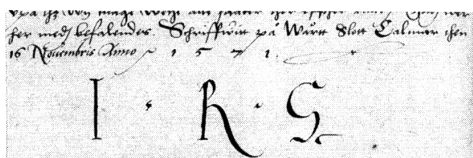 her med befalendes. Schriffwitt på Wårtt Slott Calmar then
16 Nouembris Anno 1571.
I. R. S